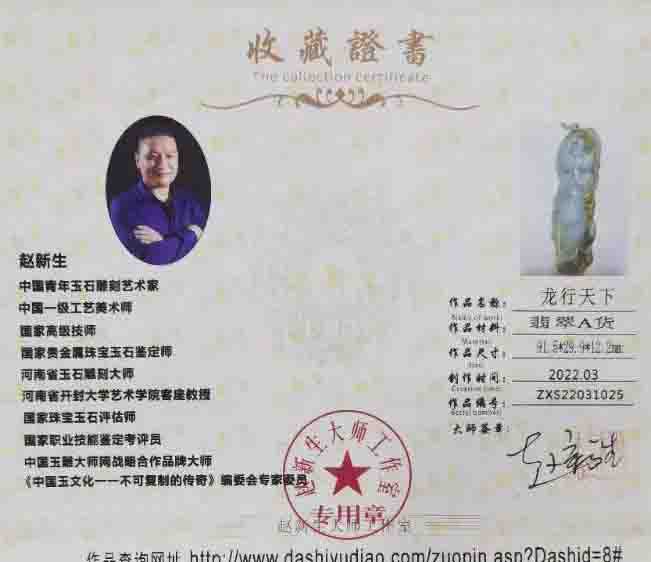 收藏證書
The collection certificate
赵新生
中国青年玉石雕刻艺术家
中国一级工艺美术师
国家高级技师
国家贵金属珠宝玉石鉴定师
河南省玉石雕刻大师
河南省开封大学艺术学院客座教授
国家珠宝玉石评估师
国家职业技能鉴定考评员
中国玉雕大师网战略合作品牌大师
《中国玉文化——不可复制的传奇》编委会专家委员
作品名称： 龙行天下
作品材料： 翡翠A货
Material
作品尺寸： 91.5*29.9*12.2mm
创作时间： 2022.03
Creative time
作品编号： ZXS22031025
Serial number
大师签章： 赵新生
赵新生大师工作室
专用章
赵新生大师工作室
作品查询网址 http://www.dashiyudiao.com/zuopin.asp?Dashid=8#